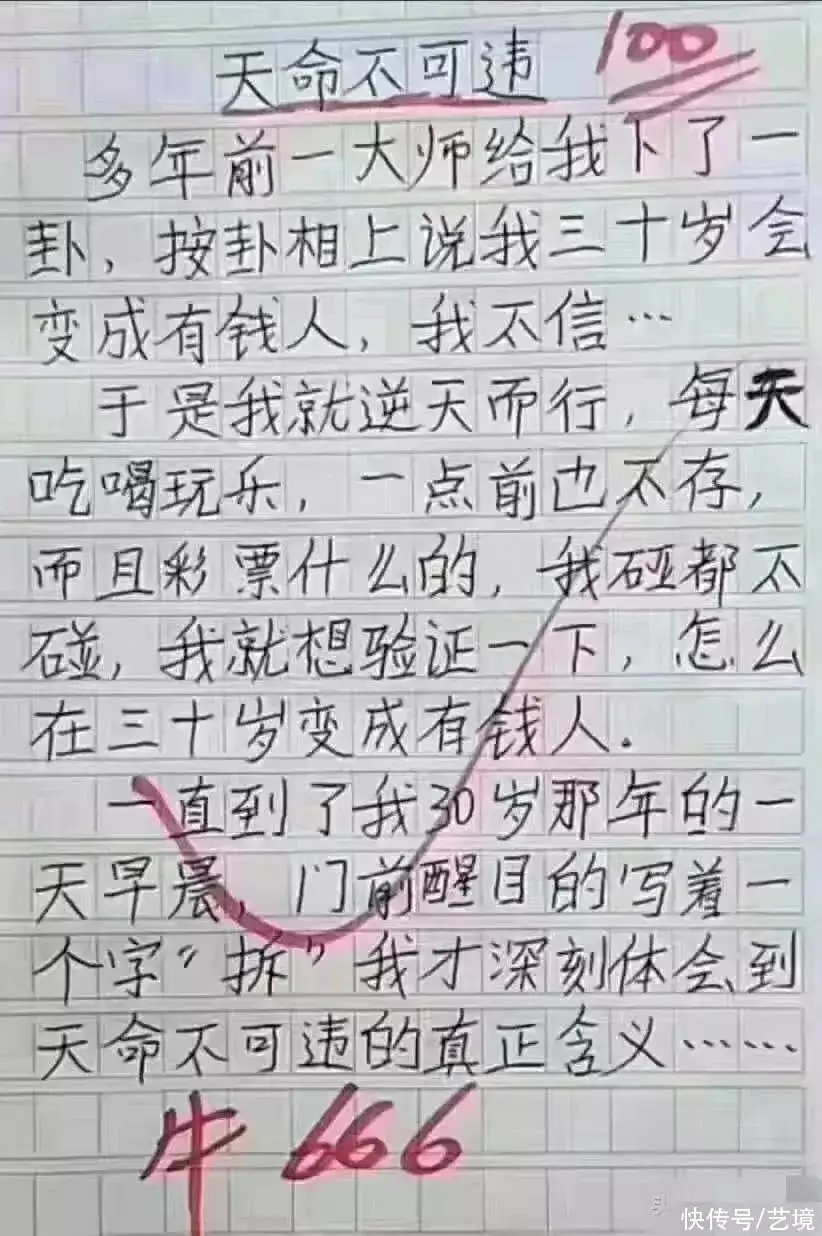 天命不可违 100
多年前一大师给我下了一
卦，按卦相上说我三十岁会
变成有钱人，我不信…
于是我就逆天而行，每天
吃喝玩乐，一点前也不存，
而且彩票什么的，我碰都不
碰，我就想验证一下，怎么
在三十岁变成有钱人.
一直到了我30岁那年的一
天早晨，门前醒目的写着一
个字“拆”我才深刻体会到
天命不可违的真正含义……
牛 666
快传号/艺境